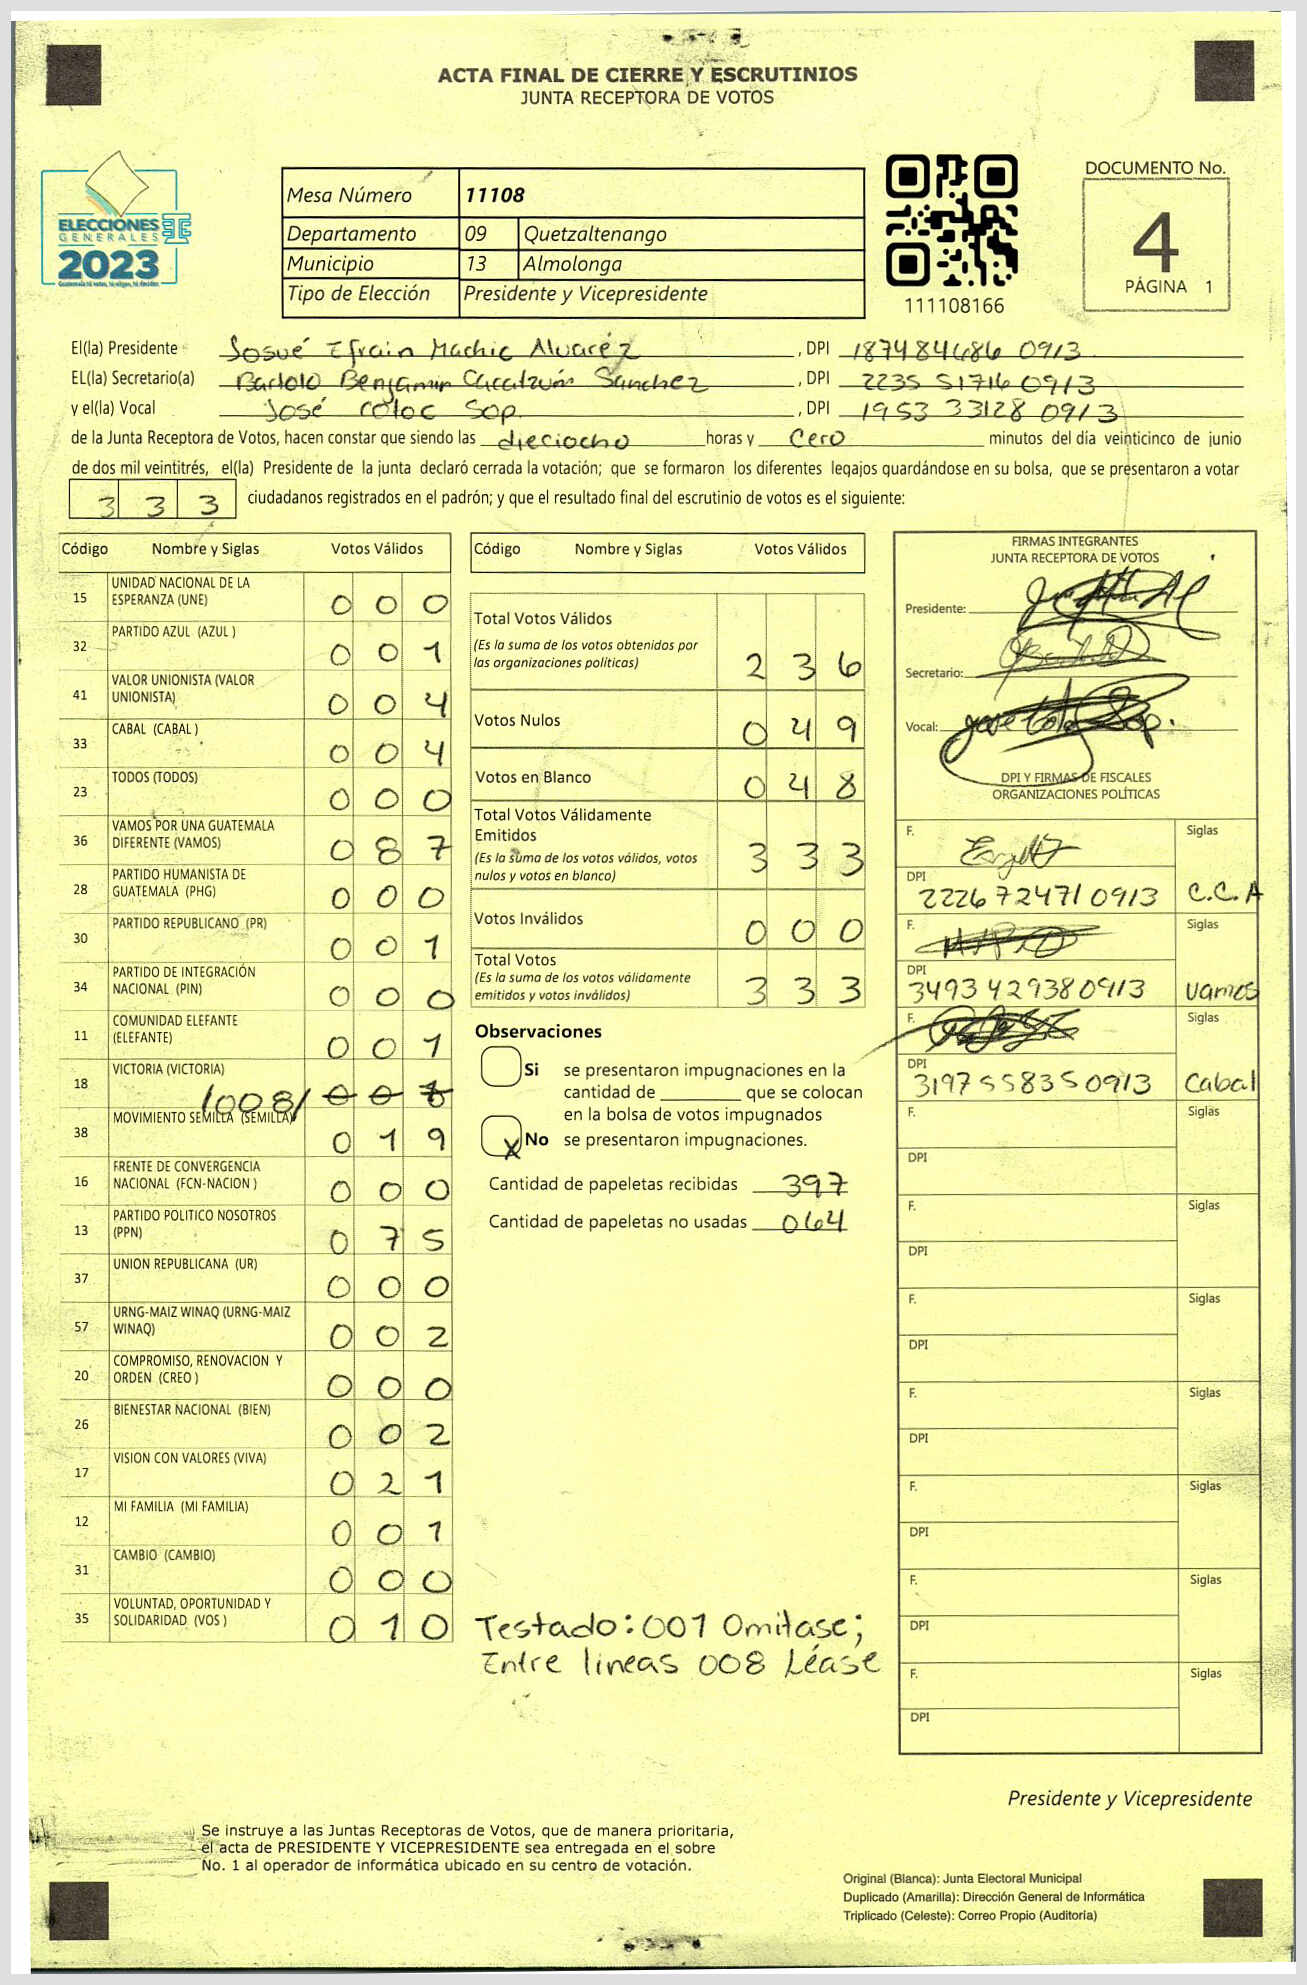 ACTA FINAL DE CIERRE Y ESCRUTINIOS
JUNTA RECEPTORA DE VOTOS
ELECCIONES
GENERALES
2023
Mesa Número 11108
Departamento 09 Quetzaltenango
Municipio 13 Almolonga
Tipo de Elección Presidente y Vicepresidente
111108166
DOCUMENTO No.
4
PÁGINA 1
El(la) Presidente Josué Efraín Machic Alvaréz, DPI 187484686 0913
EL(la) Secretario(a) Bartolo Benjamin Sánchez, DPI 2235 51716 0913
y el(la) Vocal José Coloc Sop., DPI 1953 33128 0913
de la Junta Receptora de Votos, hacen constar que siendo las dieciocho horas y Cero minutos del día veinticinco de junio
de dos mil veintitrés, el(la) Presidente de la junta declaró cerrada la votación; que se formaron los diferentes legajos guardándose en su bolsa, que se presentaron a votar
3 3 3 ciudadanos registrados en el padrón; y que el resultado final del escrutinio de votos es el siguiente:
Código Nombre y Siglas Votos Válidos
15 UNIDAD NACIONAL DE LA ESPERANZA (UNE) 0 0 0
32 PARTIDO AZUL (AZUL ) 0 0 1
41 VALOR UNIONISTA (VALOR UNIONISTA) 0 0 4
33 CABAL (CABAL ) 0 0 4
23 TODOS (TODOS) 0 0 0
36 VAMOS POR UNA GUATEMALA DIFERENTE (VAMOS) 0 8 7
28 PARTIDO HUMANISTA DE GUATEMALA (PHG) 0 0 0
30 PARTIDO REPUBLICANO (PR) 0 0 1
34 PARTIDO DE INTEGRACIÓN NACIONAL (PIN) 0 0 0
11 COMUNIDAD ELEFANTE (ELEFANTE) 0 0 1
18 VICTORIA (VICTORIA) /008/
38 MOVIMIENTO SEMILLA (SEMILLA) 0 1 9
16 FRENTE DE CONVERGENCIA NACIONAL (FCN-NACION ) 0 0 0
13 PARTIDO POLITICO NOSOTROS (PPN) 0 7 5
37 UNION REPUBLICANA (UR) 0 0 0
57 URNG-MAIZ WINAQ (URNG-MAIZ WINAQ) 0 0 2
20 COMPROMISO, RENOVACION Y ORDEN (CREO ) 0 0 0
26 BIENESTAR NACIONAL (BIEN) 0 0 2
17 VISION CON VALORES (VIVA) 0 2 1
12 MI FAMILIA (MI FAMILIA) 0 0 1
31 CAMBIO (CAMBIO) 0 0 0
35 VOLUNTAD, OPORTUNIDAD Y SOLIDARIDAD (VOS ) 0 1 0
Código Nombre y Siglas Votos Válidos
Total Votos Válidos
(Es la suma de los votos obtenidos por
las organizaciones políticas) 2 3 6
Votos Nulos 0 4 9
Votos en Blanco 0 4 8
Total Votos Válidamente
Emitidos
(Es la suma de los votos válidos, votos
nulos y votos en blanco) 3 3 3
Votos Inválidos 0 0 0
Total Votos
(Es la suma de los votos válidamente
emitidos y votos inválidos) 3 3 3
Observaciones
Si se presentaron impugnaciones en la
cantidad de ________ que se colocan
en la bolsa de votos impugnados
X No se presentaron impugnaciones.
Cantidad de papeletas recibidas 397
Cantidad de papeletas no usadas 064
Testado: 001 Omitase;
Entre lineas 008 Léase
FIRMAS INTEGRANTES
JUNTA RECEPTORA DE VOTOS
Presidente:
Secretario:
Vocal: José Coloc Sop.
DPI Y FIRMAS DE FISCALES
ORGANIZACIONES POLÍTICAS
F. Siglas
DPI 2226 72471 0913 C.C.A
F. Siglas
DPI 3493 42938 0913 Vamos
F. Siglas
DPI 3197 55835 0913 Cabal
F. Siglas
DPI
F. Siglas
DPI
F. Siglas
DPI
F. Siglas
DPI
F. Siglas
DPI
F. Siglas
DPI
F. Siglas
DPI
Presidente y Vicepresidente
Se instruye a las Juntas Receptoras de Votos, que de manera prioritaria,
el acta de PRESIDENTE Y VICEPRESIDENTE sea entregada en el sobre
No. 1 al operador de informática ubicado en su centro de votación.
Original (Blanca): Junta Electoral Municipal
Duplicado (Amarilla): Dirección General de Informática
Triplicado (Celeste): Correo Propio (Auditoría)